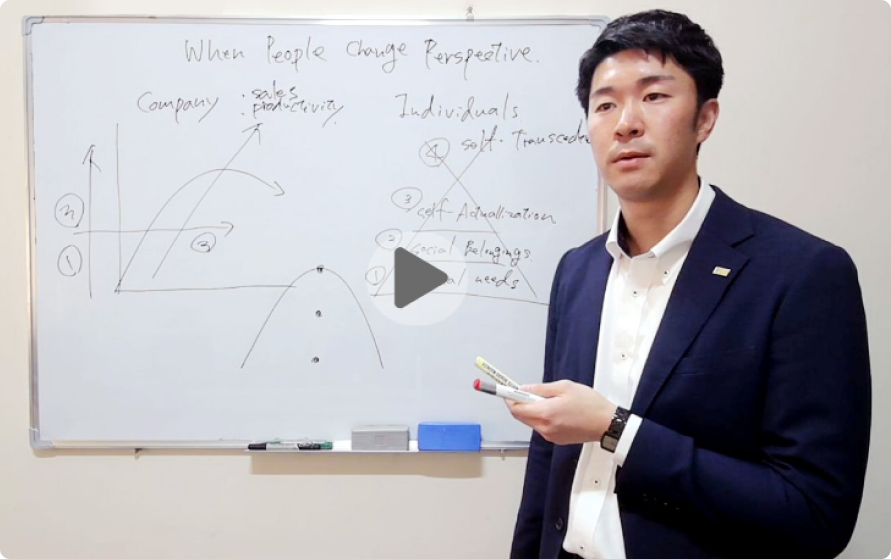 When People Change Perspective.
Company : sales
productivity
Individuals
④ self-Transcade
③ self-Actuallization
② social Belongings
① al needs
②
①
③